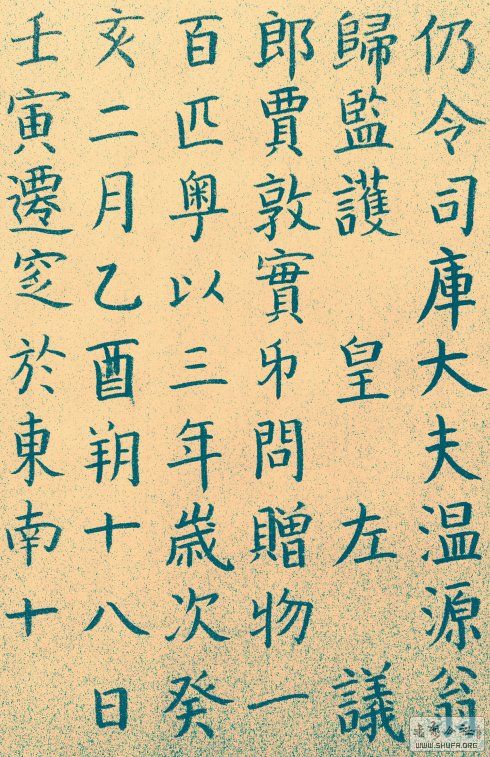 仍令司庫大夫温源翁
歸監護 皇 左 議
郎賈敦實弔問贈物一
百匹粤以三年歲次癸
亥二月乙酉朔十八日
壬寅遷窆於東南十
WWW.SHUFA.ORG